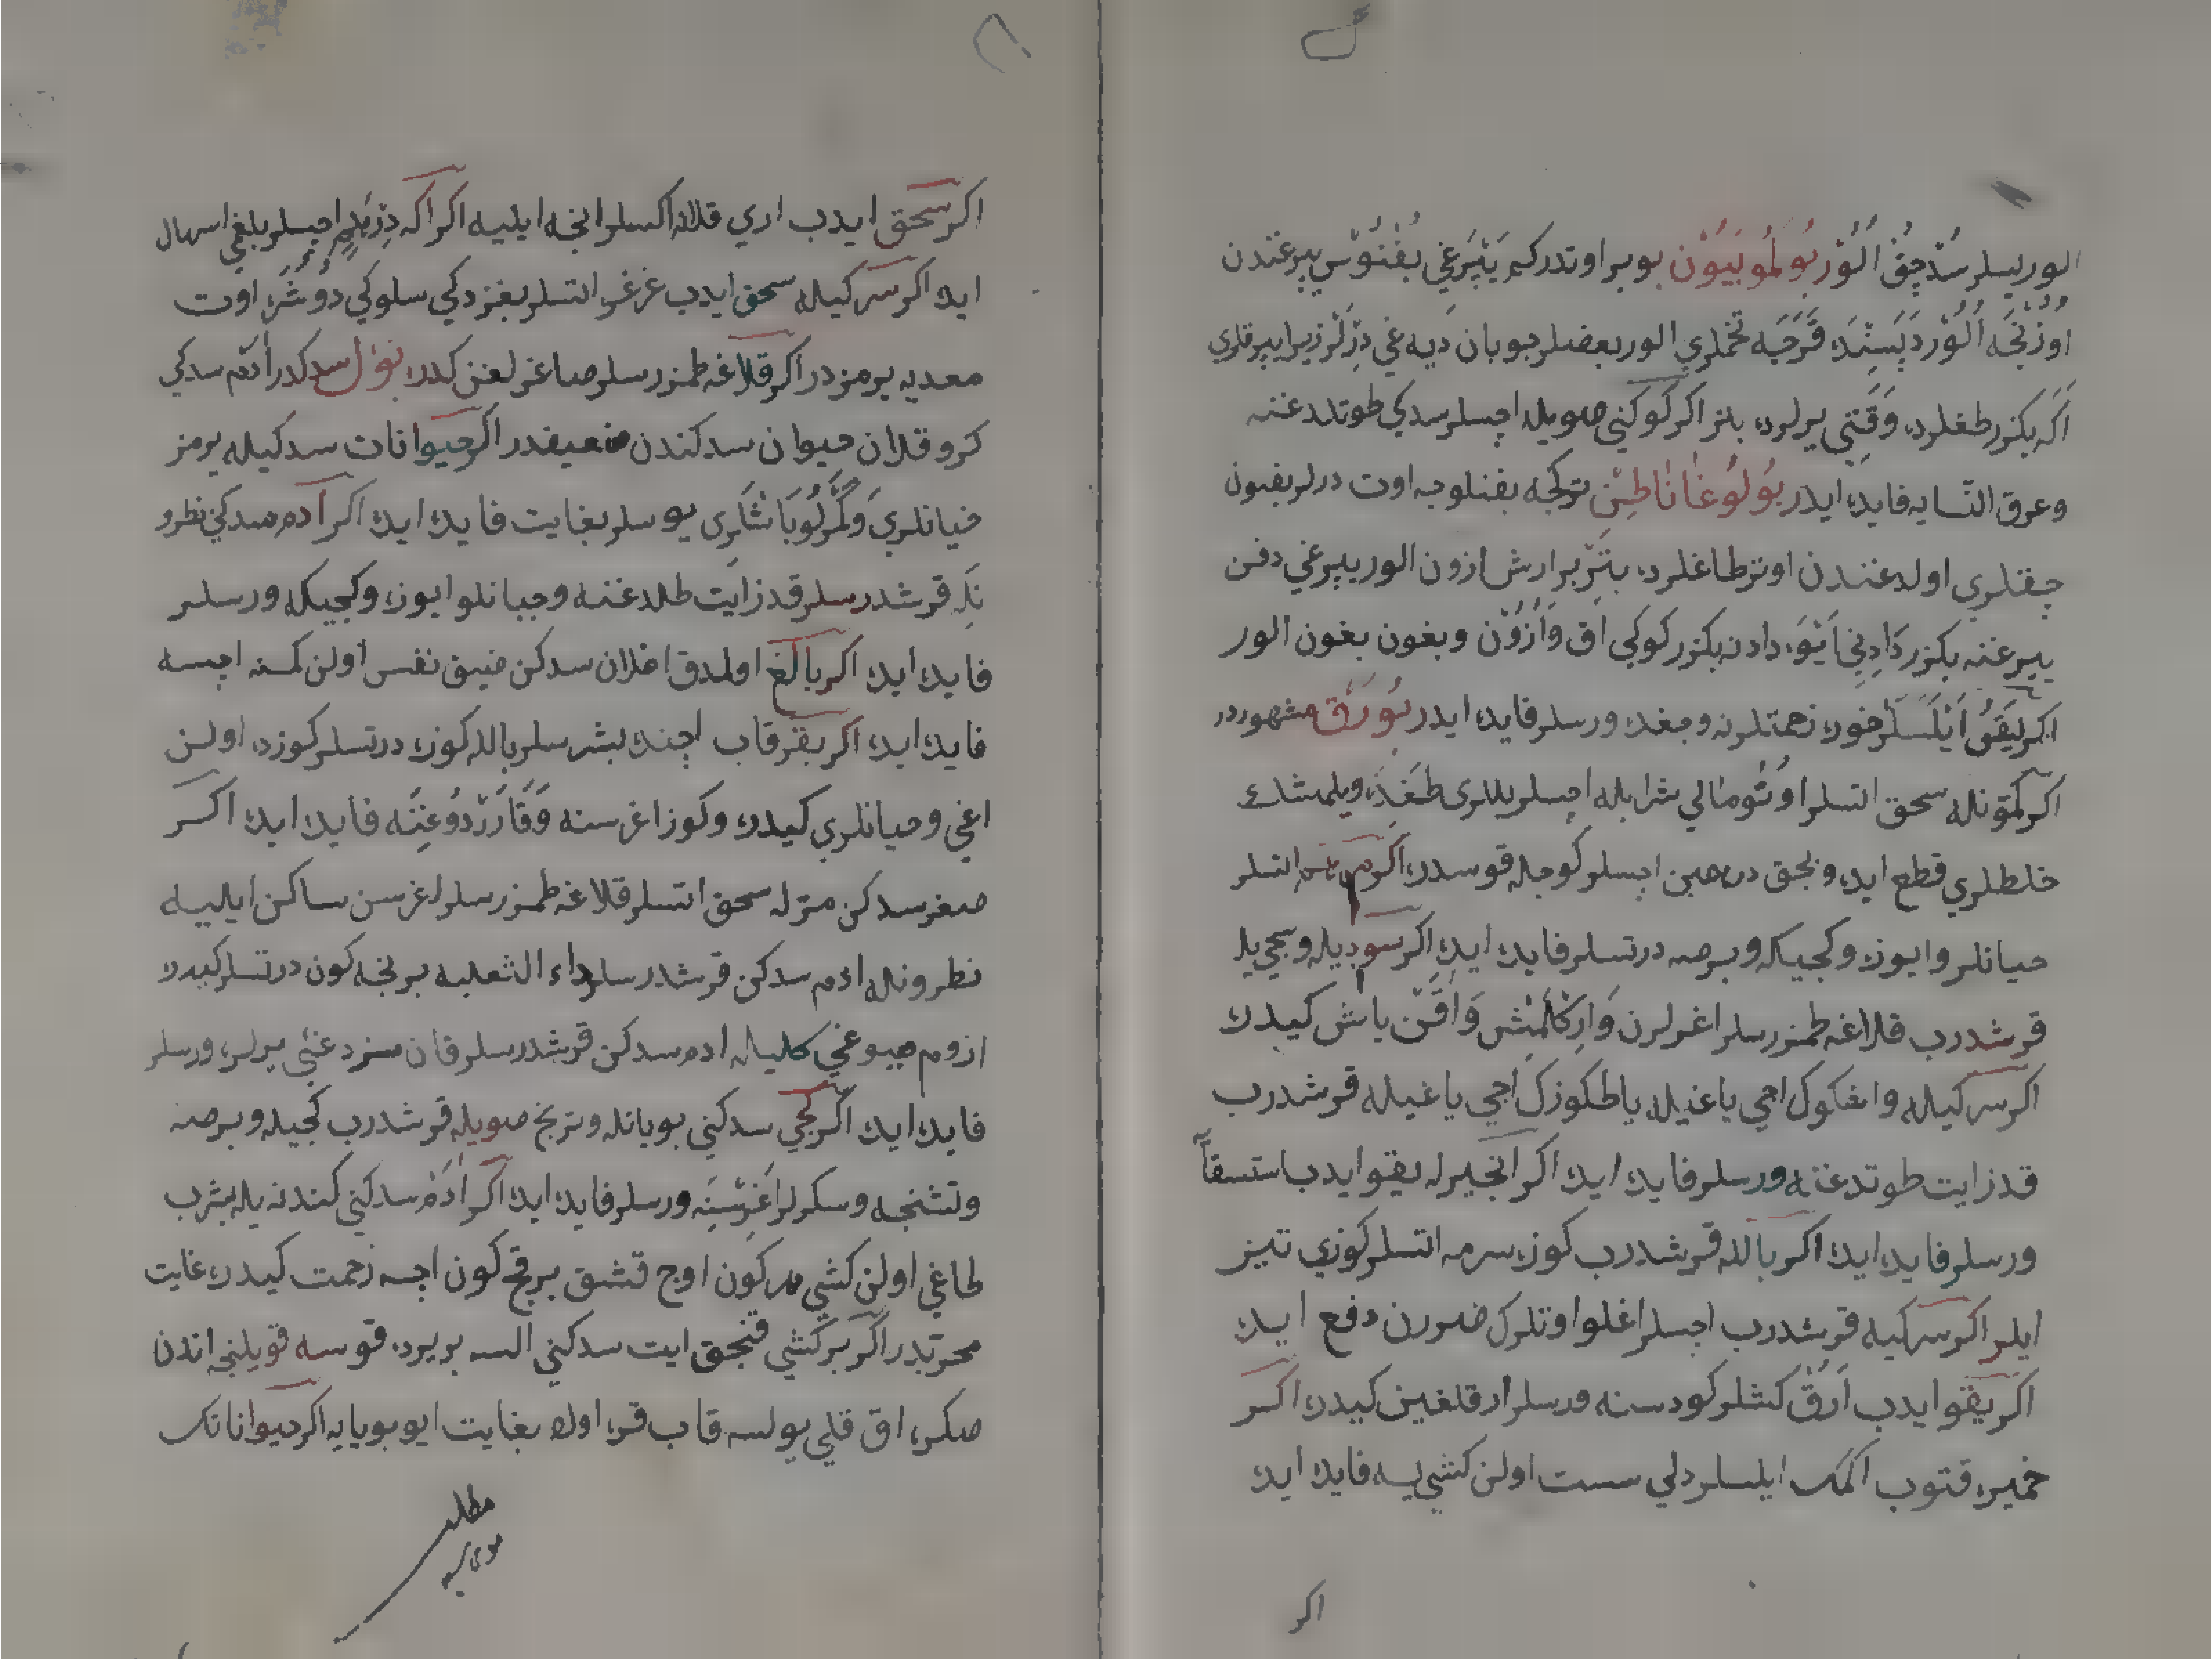 الور يسلر سُدْ چِقُْ اَلُوْر بُولَمُوبَيُوْن بو بر اوتدر كم يَپْرَغِي بُقْنُوْسْ يپرغندن
اوُزْنْجَه اَلُوْر دَپَسِنْدَه قَرَجَه تخملري الور بعضلر جوبان ديه غي دِرْلَرْ زيرا يپرقلري
اَكَه بكزر طغلرده وَقَتِي يرلرده بتر اكر كوكني صويله اچسلر سدكي طوتلدغنه
وعرق النسايه فايده ايدر بُولُوغَاناطِيْن تركجه بقنلوجه اوت درلر بقنون
چقلري اولدغندن اوتر طاغلرده بِتَرْ بر ارش ازون الور يپرغي دفن
يپرغنه بكزر دَادِنِي اَيْوَه دادنه بكزر كوكي اَق وَاُزُوْن وبغون بغون الور
اكر يَقُو اَيْلَسَلَرْ خوره زحمتلرنه ومغده ورسلر فايده ايدر بُورَق مشهوردر
اكر كمونله سحق اتسلر اوتُومالي شرابله اچسلر يللري طَغِدَه ويلمشك
خلطلري قطع ايده ونجق درهمين اچسلر كوجله قوسدره اكر اتسلر
حيانلر وايوزه وكجيكه وبرصه درتسلر فايده ايده اكر سوديله وسجي يله
قرشدرب قلاغه طمزرسلر اغرلرن وَارِكْلَمِش وَاقَن ياش كيدره
اكر سركيله واغكوكل اجي ياغيله ياطكوزك اجي ياغيله قرشدرب
قدز ايت طوتدغنه ورسلر فايده ايده اكر انجيرله يقو ايدب استسقاآ
ورسلر فايده ايده اكر بالله قرشدرب كوزه سرمه اتسلر كوزي تيز
ايلر اكر سركيه قرشدرب اچسلر اغلو اوتلرك ضررن دفع ايده
اكر يقو ايدب اَرُقْ كشلر كودسنه ورسلر ارقلغين كيدره اكر
خميره قتوب اكمك ايلسلر دلي سست اولن كشي يه فايده ايده
اكر
اكر سحق ايدب اري قلاله اكسلر انجه ايليه اكر اكه دِرْمَلِهِ اچسلر بلغمي اسهال
ايده اكر سركيله سحق ايدب غرغره اتسلر بغزدكي سلوكي دُوشُرَه اوت
معديه يرمزدر اكر قلاغه طمزرسلر صاغرلغن كدره بَوْل سدكدر اَدَم سدكي
كرو قلان حيوان سدكندن ضعيفدر اكر حيوانات سدكيله يرمز
خيانلري وَكْرلُو بَاشْلَرِى يوسلر بغايت فايده ايده اكر آدم سدكي نطرو
نَلِه قرشدرسلر قدز اَيِت طلدغنه وجبانلو ايوزه وكجيكه ورسلر
فايده ايده اكر بالغ اولمدق اغلان سدكن ضيق نفس اولن كمسنه اچسه
فايده ايده اكر بقر قاب اچنده بشرسلر بالله كوزه درتسلر كوزده اولن
اغي وحيانلري كيدره وكوز اغرسنه وَقَارَرْدُوغِنَه فايده ايده اكر
صغر سدكن مرله سحق اتسلر قلاغه طمزرسلر اغرسن ساكن ايليه
نطرونله ادم سدكن قرشدرسلر داء الثعلبه بر نخه كون درتسلر كيدره
ازوم جيوغي كليله ادم سدكن قرشدرسلر قان سزدغني يرلره ورسلر
فايده ايده اكر كجي سدكني بويانله وتربخ صويله قرشدرب كجيله وبرصه
وتشنجه وسكرلر اَغِرْسِنَه ورسلر فايده ايده اكر اَدَمْ سدكني كندنه يله يشرب
طاغي اولن كشي هر كون اوج قشق بر قچ كون اچسه زحمت كيدره غايت
مجربدر اكر بر كشي قنجق ايت سدكني السه بر يرده قوسه قويلنجه اندن
صكره اق قلي يولسه قاب قره اوله بغايت ايو بويايه اكر حيواناتك
مطلب